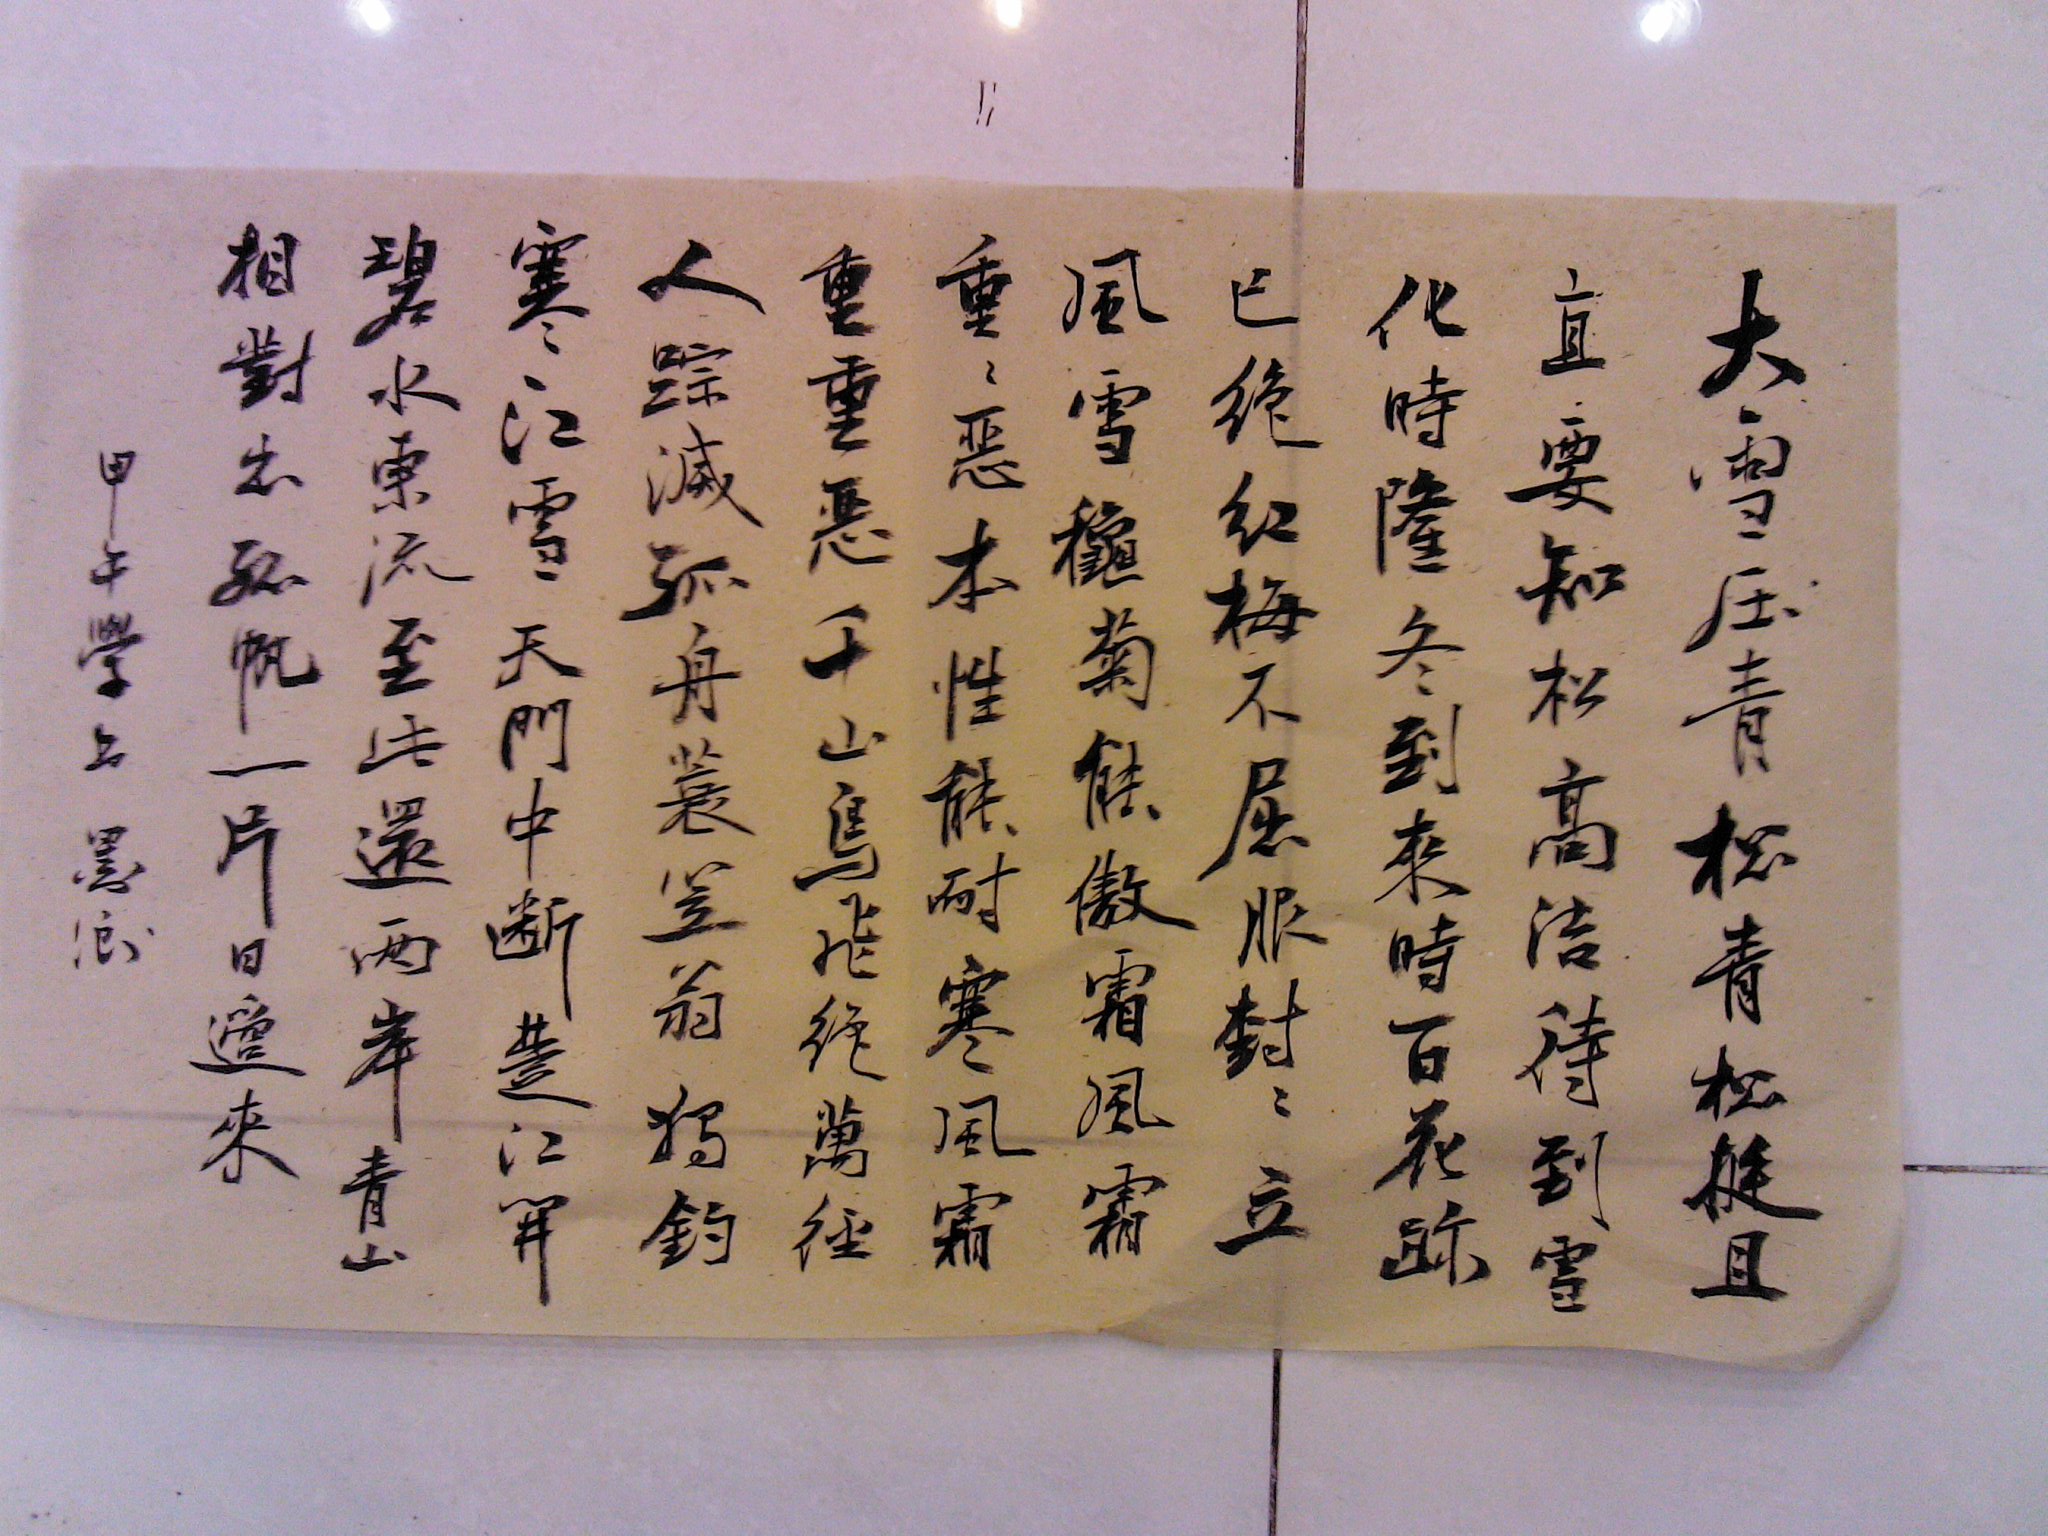 大雪压青松青松挺且
直要知松高洁待到雪
化時隆冬到來時百花跡
已绝红梅不屈服對々立
風雪龝菊能傲霜風霜
重々惡本性能耐寒風霜
重重惡千山鳥飛绝萬徑
人踪滅孤舟蓑笠翁獨釣
寒江雪天門中断楚江開
碧水東流至此還两岸青山
相對出孤帆一片日邊來
甲午學書